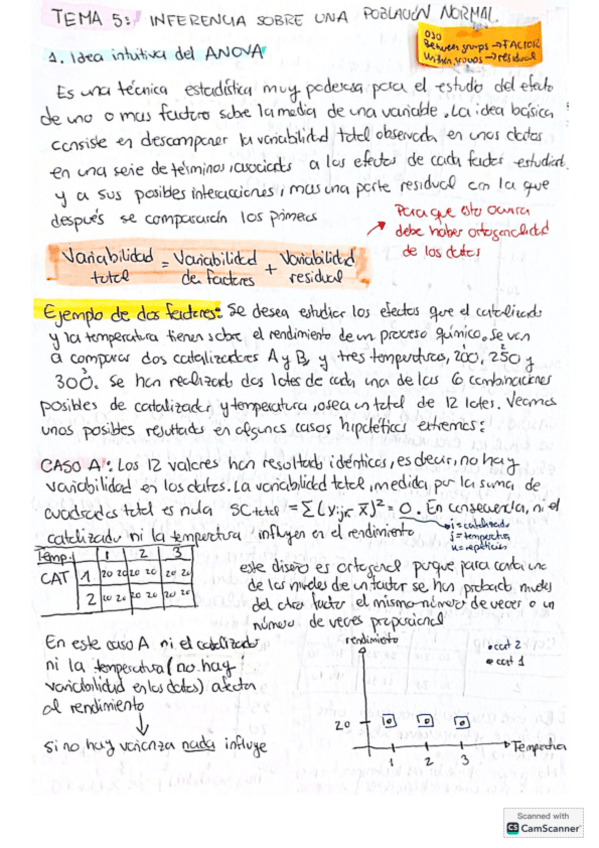 TEMA 5: INFERENCIA SOBRE UNA POBLACIÓN NORMAL.
OJO
Between groups → FACTOR
Within groups → residual
1. Idea intuitiva del ANOVA
Es una técnica estadística muy poderosa para el estudio del efecto
de uno o mas factores sobre la media de una variable. La idea básica
consiste en descomponer la variabilidad total observada en unos datos
en una serie de términos, asociados a los efectos de cada factor estudiado
y a sus posibles interacciones, mas una parte residual con la que
después se compararán los primeros
Para que esto ocurra
debe haber ortogonalidad
de los datos
Variabilidad total = Variabilidad de factores + Variabilidad residual
Ejemplo de dos factores: Se desea estudiar los efectos que el catalizador
y la temperatura tienen sobre el rendimiento de un proceso químico. Se van
a comparar dos catalizadores A y B, y tres temperaturas, 200, 250 y
300. Se han realizado dos lotes de cada una de las 6 combinaciones
posibles de catalizador y temperatura, o sea un total de 12 lotes. Veamos
unos posibles resultados en algunos casos hipotéticos extremos:
CASO A: Los 12 valores han resultado idénticos, es decir, no hay
variabilidad en los datos. La variabilidad total, medida por la suma de
cuadrados total es nula SC total = Σ(Yijk x̄)² = 0. En consecuencia, ni el
catalizador ni la temperatura influyen en el rendimiento
i = catalizador
j = temperatura
Temp. 1 2 3
CAT 1 20 20 20 20 20 20
2 20 20 20 20 20 20
este diseño es ortogonal porque para cada uno
de los niveles de un factor se han probado niveles
del otro factor el mismo número de veces o un
número de veces proporcional
En este caso A ni el catalizador
ni la temperatura (no hay
variabilidad en los datos) afectan
al rendimiento
↓
si no hay varianza nada influye
rendimiento
• cat 2
• cat 1
20
1 2 3
Temperatura
Scanned with
CS CamScanner